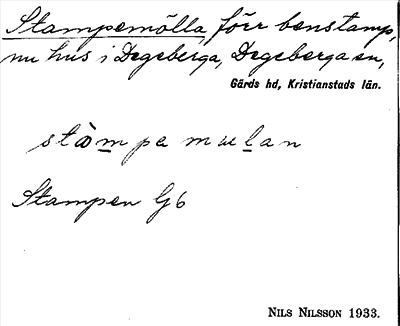 Stampemölla, förr benstamp,
nu hus i Degeberga, Degeberga sn,
Gärds hd, Kristianstads län.
stàmpemulan
Stampen G6
NILS NILSSON 1933.